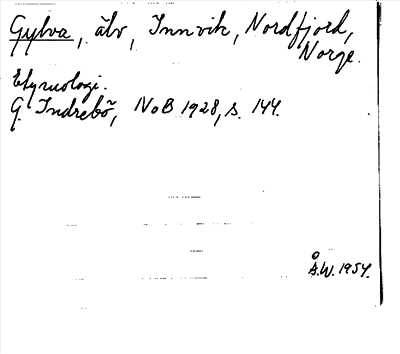 Gylva, älv, Innvik, Nordfjord,
Norge.
Etymologi.
G. Indrebö, NoB 1928, s. 144.
Å.W. 1954.